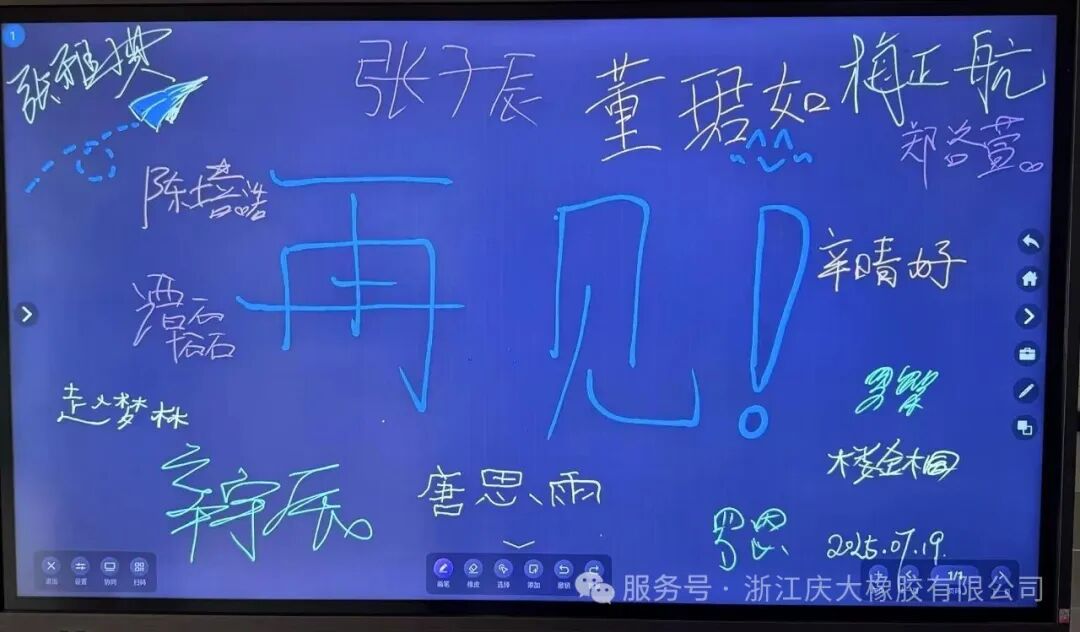 1
张雅
张子辰
董珺如
梅正航
郑谷萱
陈培浩
再见!
辛晴好
谭石磊
赵梦林
罗粲
辛宇辰
唐思雨
楼金桐
罗恩
2025.07.19.
退出 设置 协同 扫码
画笔 橡皮 选择 添加 撤销
1/1
服务号·浙江庆大橡胶有限公司